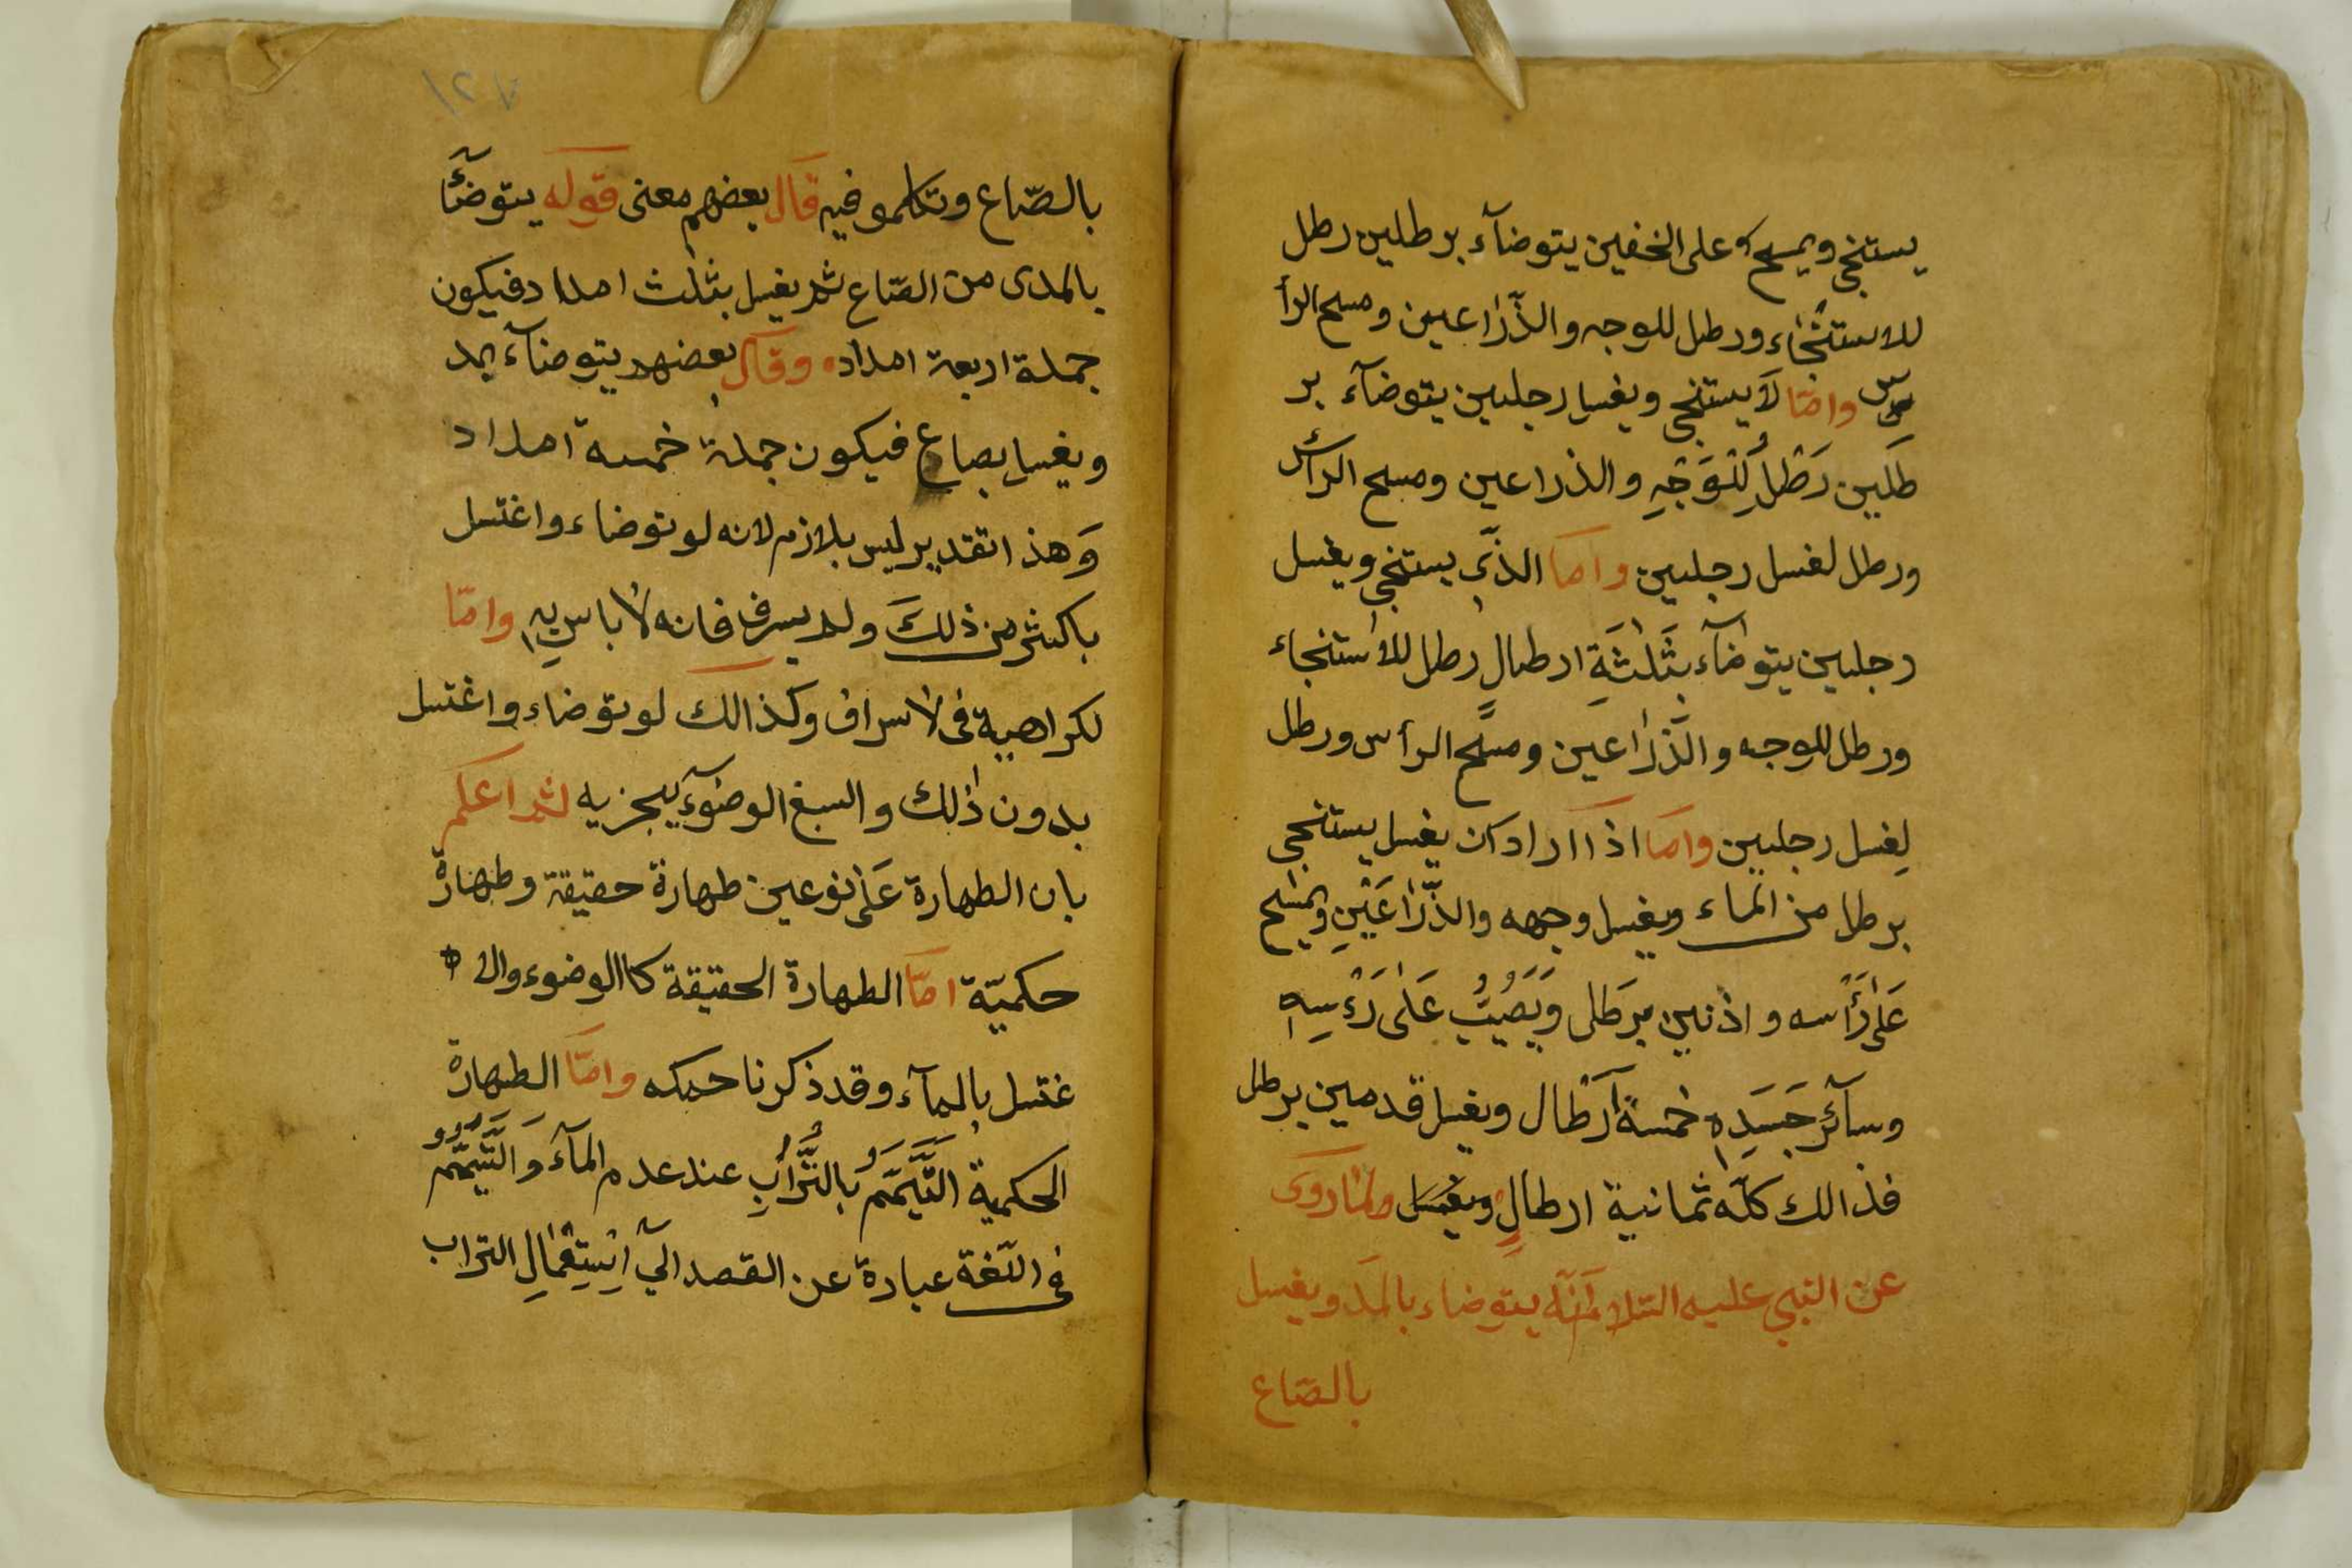 يستنجى ويمسح على الخفين يتوضآء برطلين رطل
للاستنجاء ورطل للوجه والذّراعين ومسح الرأ
س وامّا لا يستنجى ويغسل رجليين يتوضآء بر
طلين رطل للوجه والذراعين ومسح الرأس
ورطل لغسل رجليين واما الذّى يستنجى ويغسل
رجليين يتوضآء بثلثة ارطال رطل للاستنجاء
ورطل للوجه والذّراعين ومسح الرأس ورطل
لغسل رجليين واما اذا اراد ان يغسل يستنجى
برطل من الماء ويغسل وجهه والذّراعين ويمسح
على رأسه واذنين برطل ويصبّ على رءسه
وسآئر جسده خمسة ارطال ويغسل قدمين برطل
فذالك كلّه ثمانية ارطال ويغسل ولما روى
عن النبى عليه السّلام انّه يتوضاء بالمد ويغسل
بالصّاع
١٢٤
بالصّاع وتكلمو فيه قال بعضهم معنى قوله يتوضّأ
بالمدى من الصّاع ثم يغسل بثلث امداد فيكون
جملة اربعة امداد وقال بعضهم يتوضآء بمد
ويغسل بصاع فيكون جملة خمسة امداد
وهذا تقدير ليس بلازم لانه لو توضاء واغتسل
باكثر من ذلك ولم يسرف فانه لا باس به وامّا
لكراهية فى لاسراف وكذالك لو توضاء واغتسل
بدون ذلك والسبغ الوضوء يجزيه ثم اعلم
بان الطهارة على نوعين طهارة حقيقة وطهارة
حكميّة امّا الطهارة الحقيقة كا الوضوء والا
غتسل بالمآء وقد ذكرنا حكمه وامّا الطهارة
الحكمية التّيمّم بالتّراب عند عدم المآء والتّيمّم
فى اللّغة عبادة عن القصد الى استعمال التراب